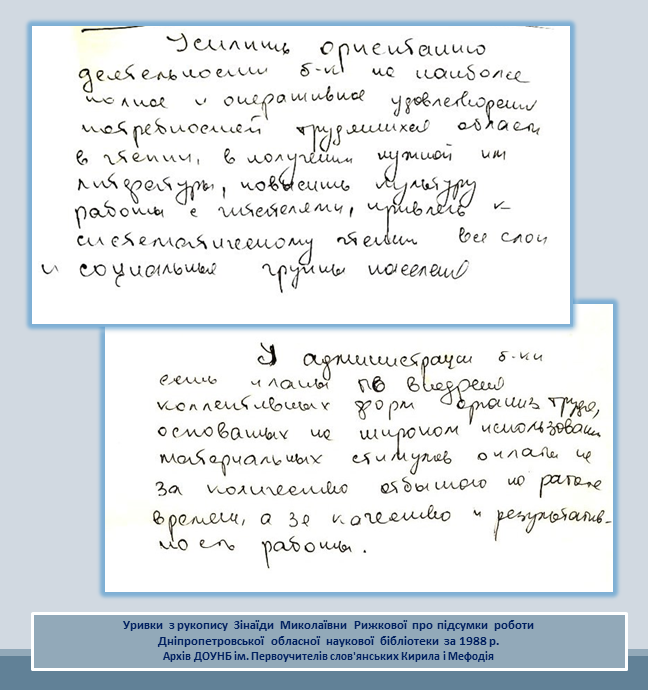 Усилить ориентацию
деятельности б-к на наиболее
полное и оперативное удовлетворение
потребностей трудящихся области
в чтении, в получении нужной им
литературы, повысить культуру
работы с читателями, привлечь к
систематическому чтению все слои
и социальные группы населения
У администрации б-ки
есть планы по внедрению
коллективных форм организ труда,
основанных на широком использовании
материальных стимулов оплаты не
за количество отбытого на работе
времени, а за качество и результатив-
ность работы.
Уривки з рукопису Зінаїди Миколаївни Рижкової про підсумки роботи
Дніпропетровської обласної наукової бібліотеки за 1988 р.
Архів ДОУНБ ім. Первоучителів слов'янських Кирила і Мефодія